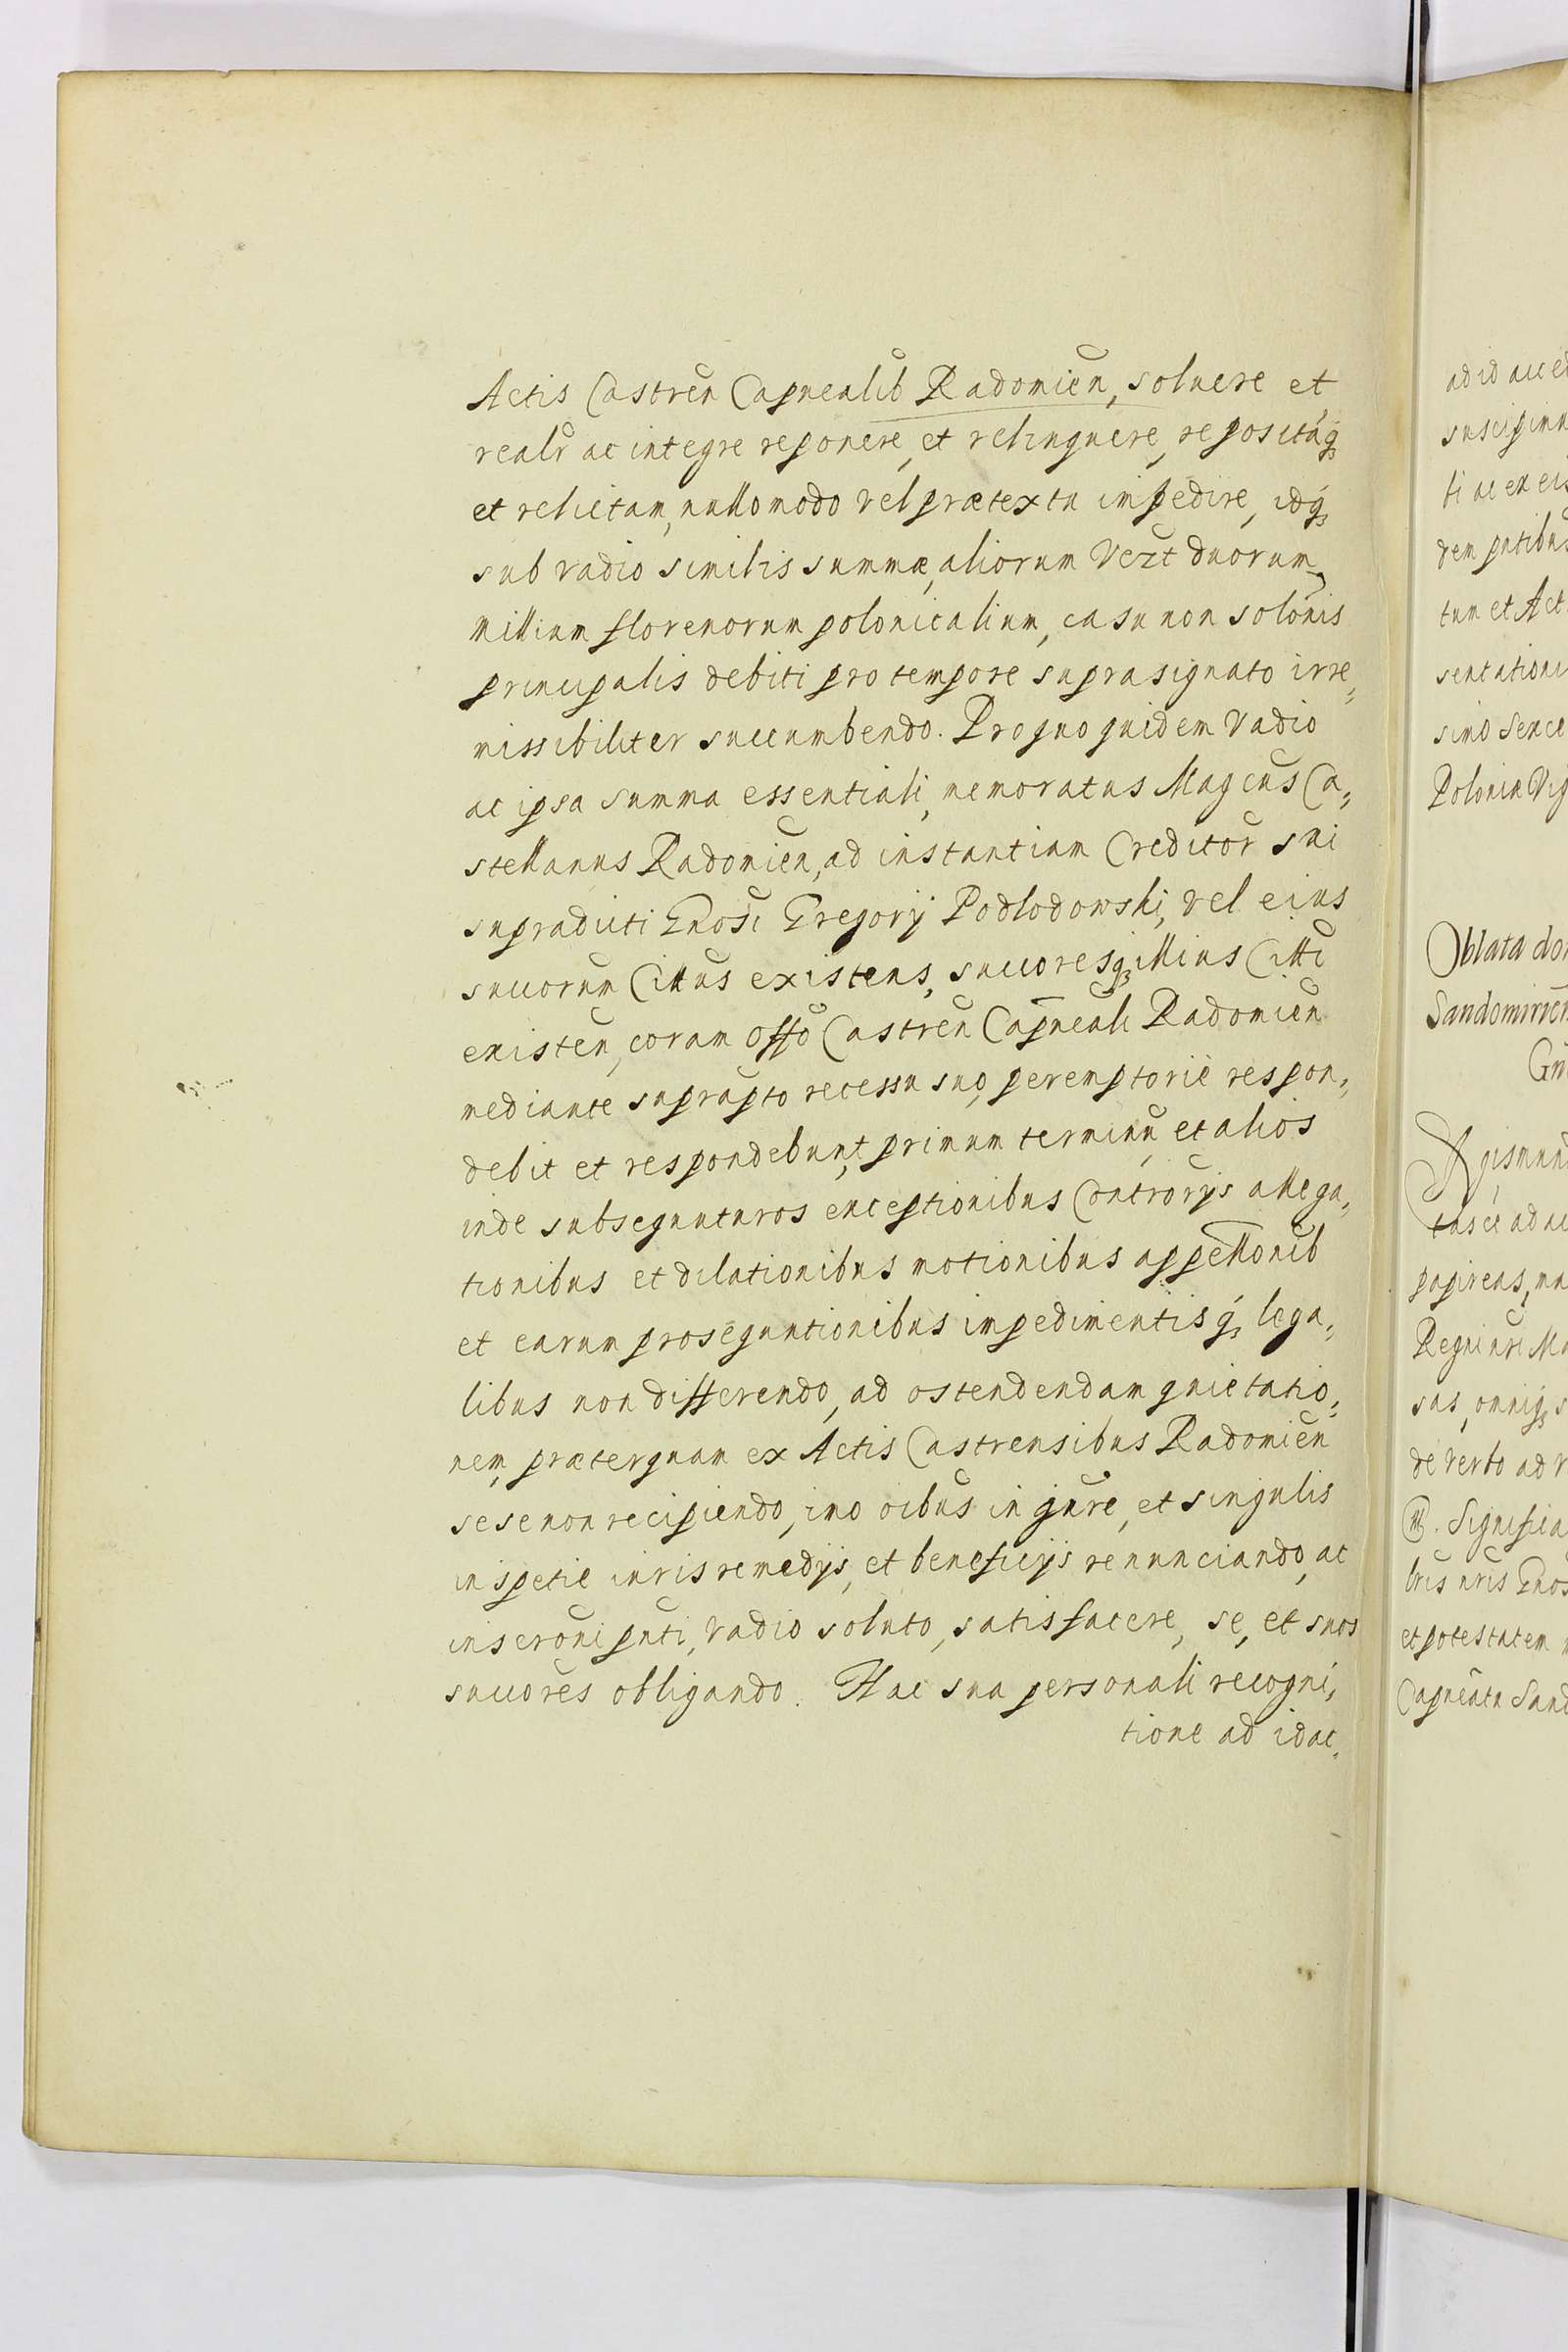 Actis Castren̄ Capnealib̄ Radomien̄, soluere et
realr̄ ac integre reponere, et relinquere, repositāq₃
et relictam, nullo modo vel prætextu impedire, idq₃
sub vadio similis summæ, aliorum vezt duorum
millium florenorum polonicalium, casu non solōnis
principalis debiti pro tempore suprasignato irre,,
missibiliter succumbendo. Pro quo quidem vadio
ac ipsa summa essentiali, memoratus Magcūs Ca,,
stellanus Radomien̄, ad instantiam Creditor̄ sui
supradicti Gnosi Gregorij Podlodowski, vel eius
succorum Cittūs existens, succoresq₃ illius Citti
existen̄, coram Offō Castren̄ Capneali Radomien̄
mediante suprap̄to recessu suo, peremptoriè respon,,
debit et respondebunt, primum terminū, et aliōs
inde subsequuturos exceptionibus Controrijs allega,,
tionibus et dilationibus motionibus appellonib̄
et earum prosequutionibus impedimentisq́₃ lega,,
libus non differendo, ad ostendendam quietatio,,
nem, præterquam ex Actis Castrensibus Radomien̄
sese non recipiendo, imo oibūs in jure, et singulis
in spetie iuris remedijs, et beneficijs renunciando, ac
inscroni pnti, vadio soluto, satisfacere, se, et suos
succores obligando. Hac sua personali recogni,,
tione ad id ac,,
ad id acced
suscipinn
li ac ex eis
dem pntibus
tum et Act
sentationi
simo
Poloniæ Vig
Oblata don
Sandomirien
tas ce ad ac
papireas, ma
Regni nri Ma
sas, omniq₃ s
de verbo ad v
Significa
bris nris Gnos
et potestatem
Capneatu Sand